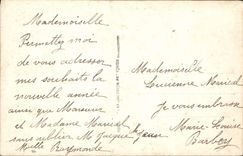 Mademoiselle
Permettez moi
de vous adresser
mes souhaits la
nouvelle année
ainsi que Monsieur
et Madame
sans oublier M Jacques
Melle Raymonde
Mademoiselle
Lucienne
je vous embrasse
Marie-Louise
Barbery